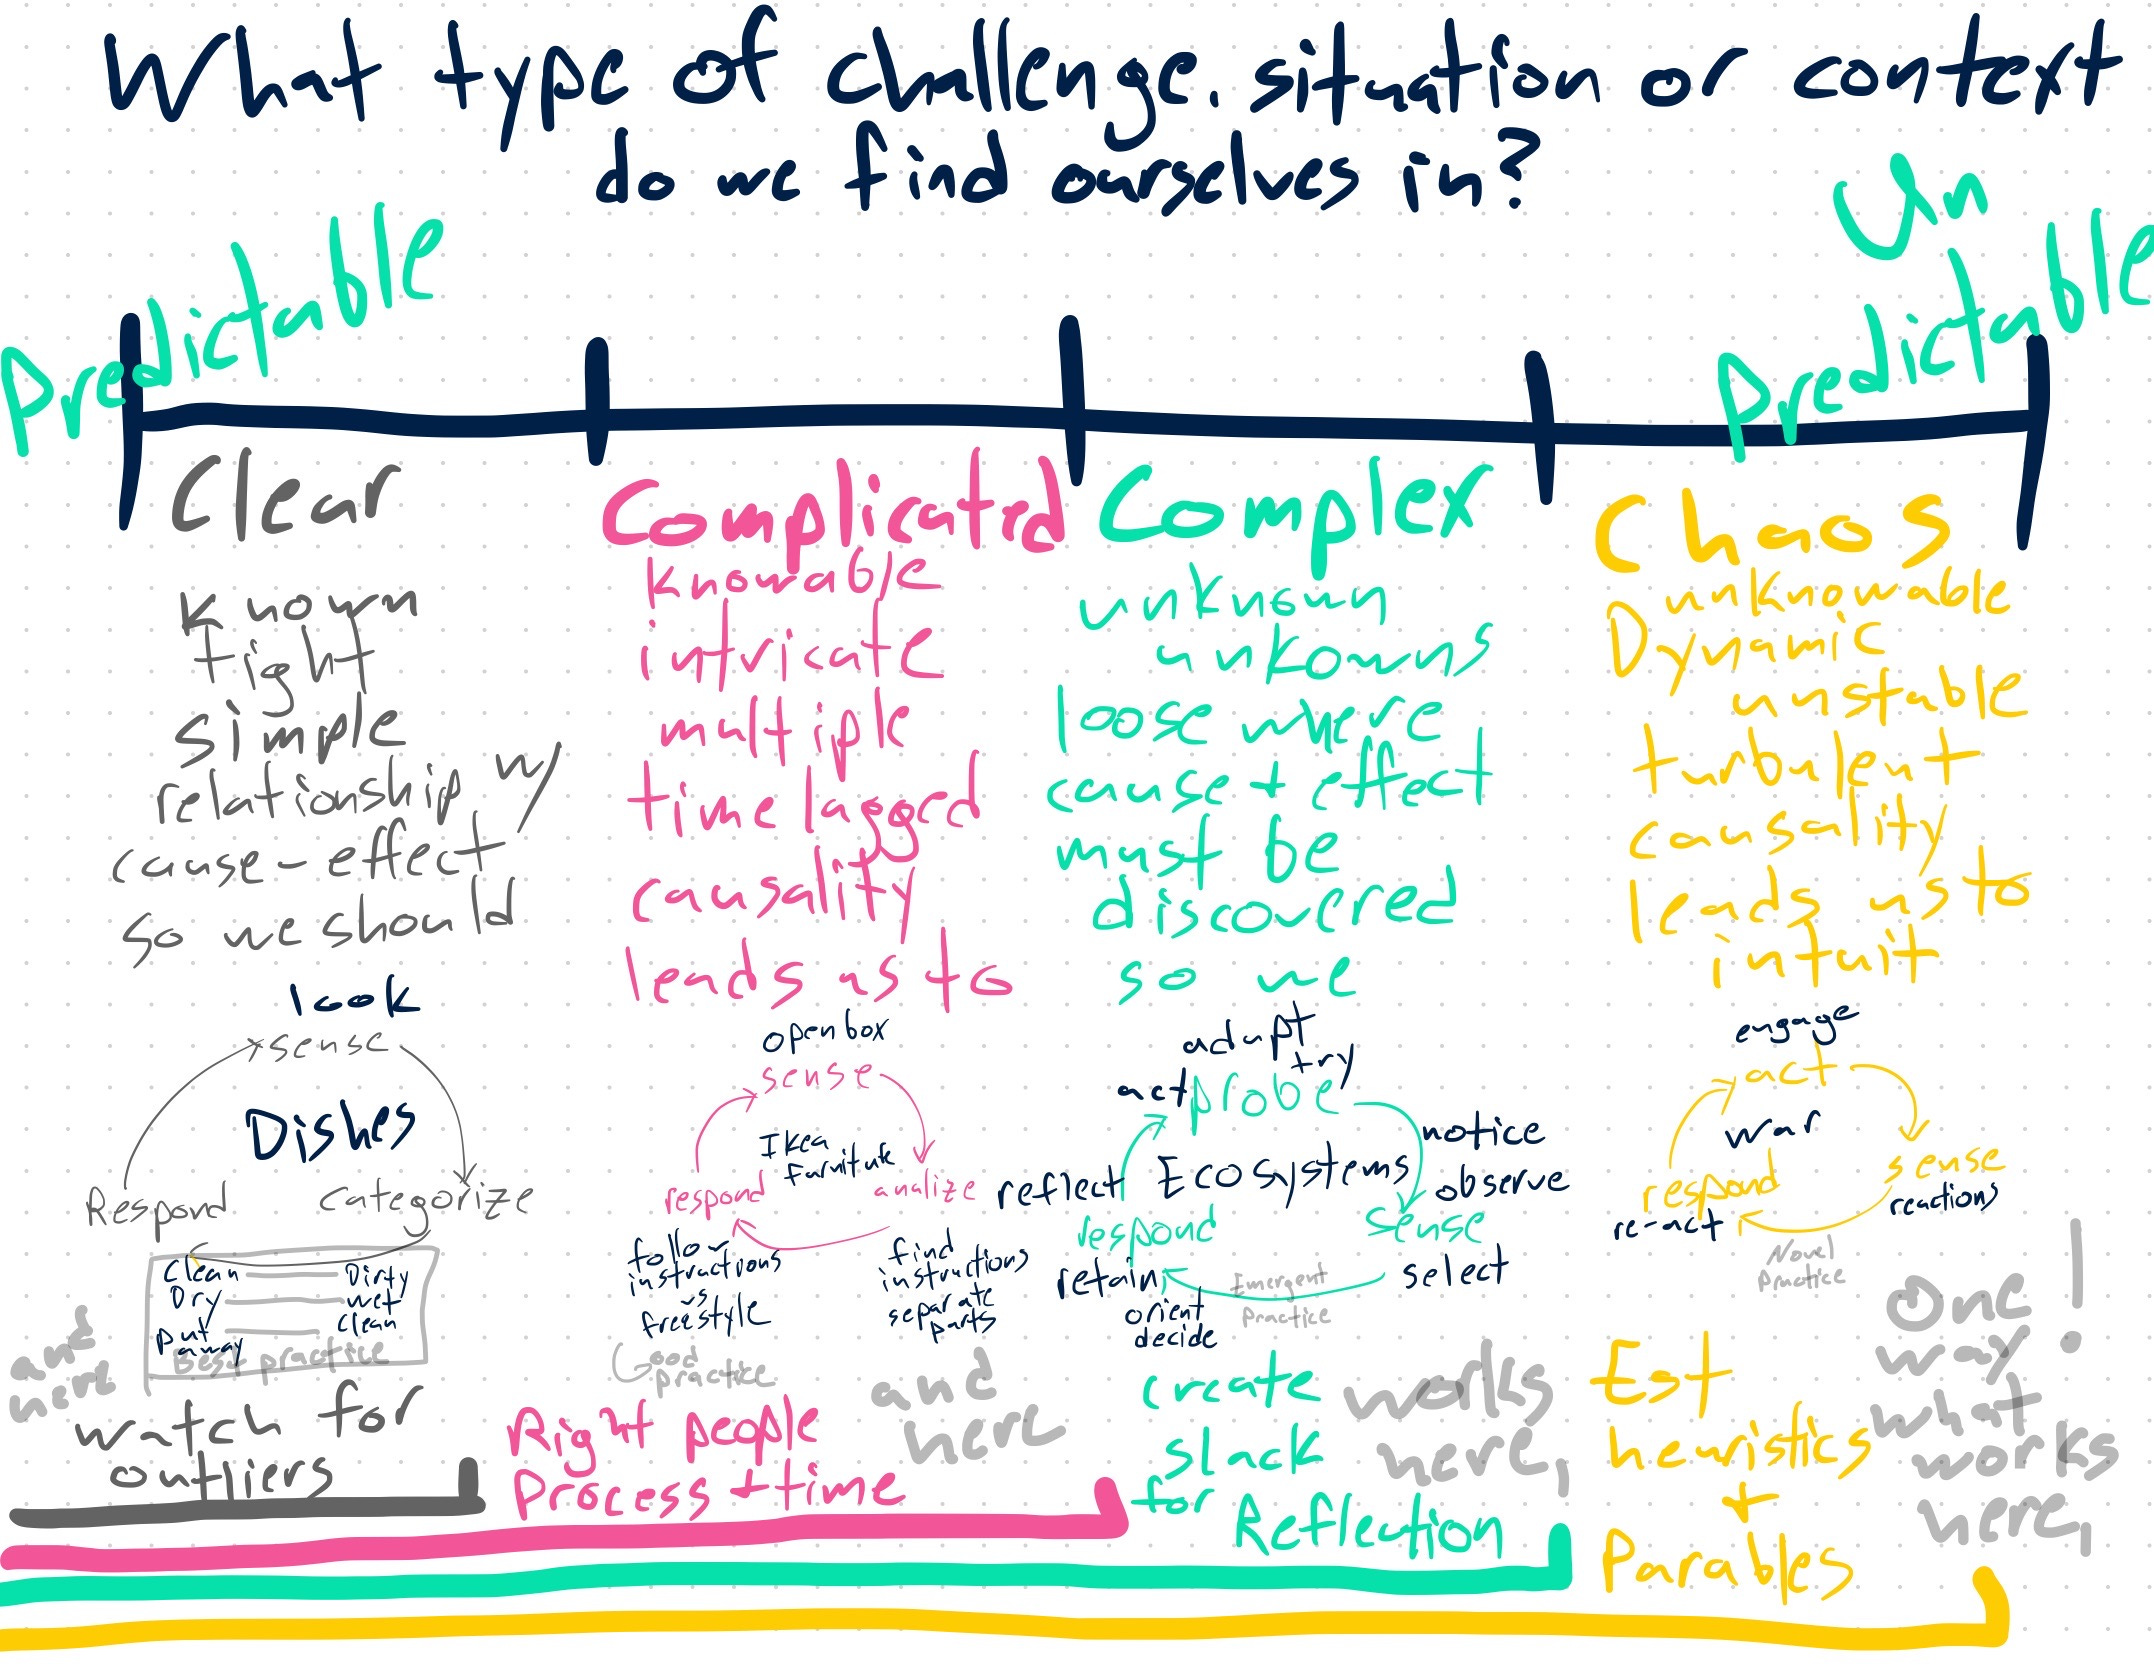 What type of challenge. situation or context
do we find ourselves in?
Predictable
Un
Predictable
Clear
known
tight
simple
relationship w/
cause-effect
so we should
look
sense
Dishes
Respond
categorize
Clean
Dirty
Dry
wet
put
away
clean
Best practice
and
here
watch for
outliers
Complicated
knowable
intricate
multiple
time lagged
causality
leads us to
open box
sense
Ikea
furniture
respond
analize
follow
instructions
vs
freestyle
find
instructions
separate
parts
Good
practice
and
here
Right people
Process + time
Complex
unknown
unkowns
loose where
cause + effect
must be
discovered
so we
adapt
try
act
probe
notice
observe
reflect
Ecosystems
respond
sense
retain
select
orient
decide
Emergent
Practice
create
slack
for
Reflection
works
here,
Chaos
unknowable
Dynamic
unstable
turbulent
causality
leads us to
intuit
engage
act
war
respond
sense
re-act
reactions
Novel
Practice
Est
heuristics
+
Parables
One
way!
what
works
here,